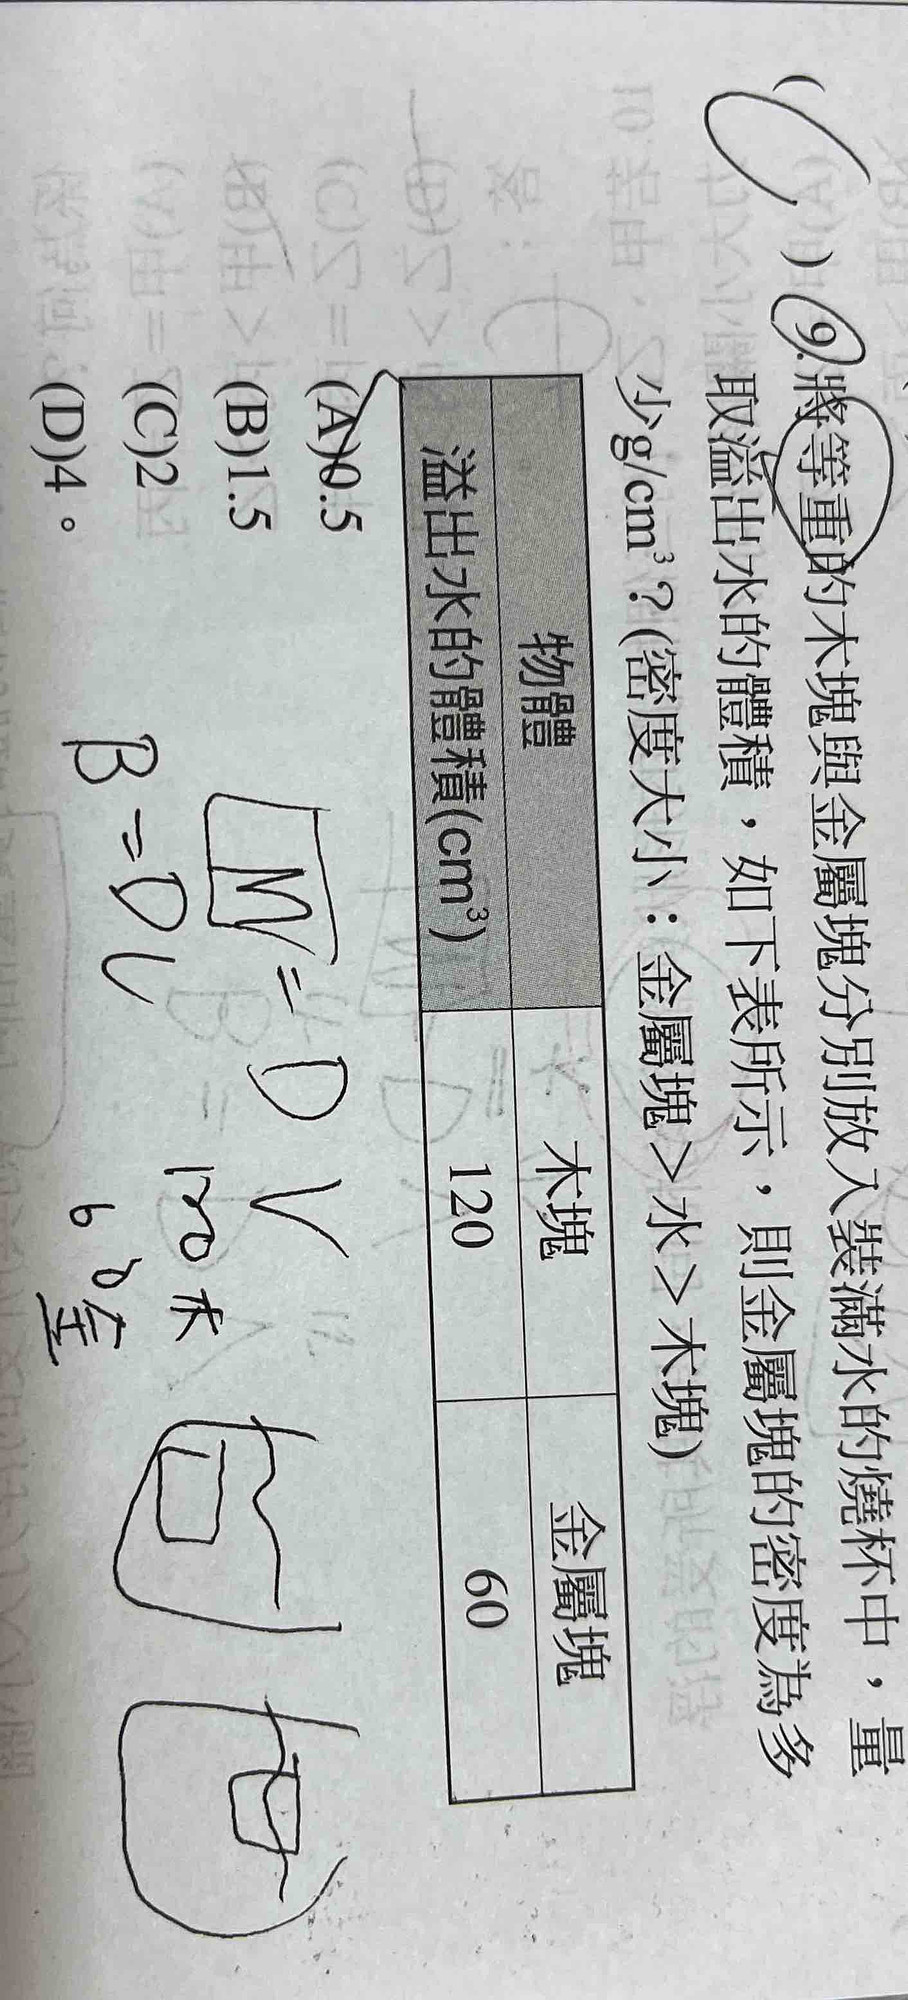 ( ) 9.將等重的木塊與金屬塊分別放入裝滿水的燒杯中，量
取溢出水的體積，如下表所示，則金屬塊的密度為多
少g/cm³？(密度大小：金屬塊＞水＞木塊)
物體 木塊 金屬塊
溢出水的體積(cm³) 120 60
(A)0.5
(B)1.5
(C)2
(D)4。
M = D V
B = D V
120 木
60 金